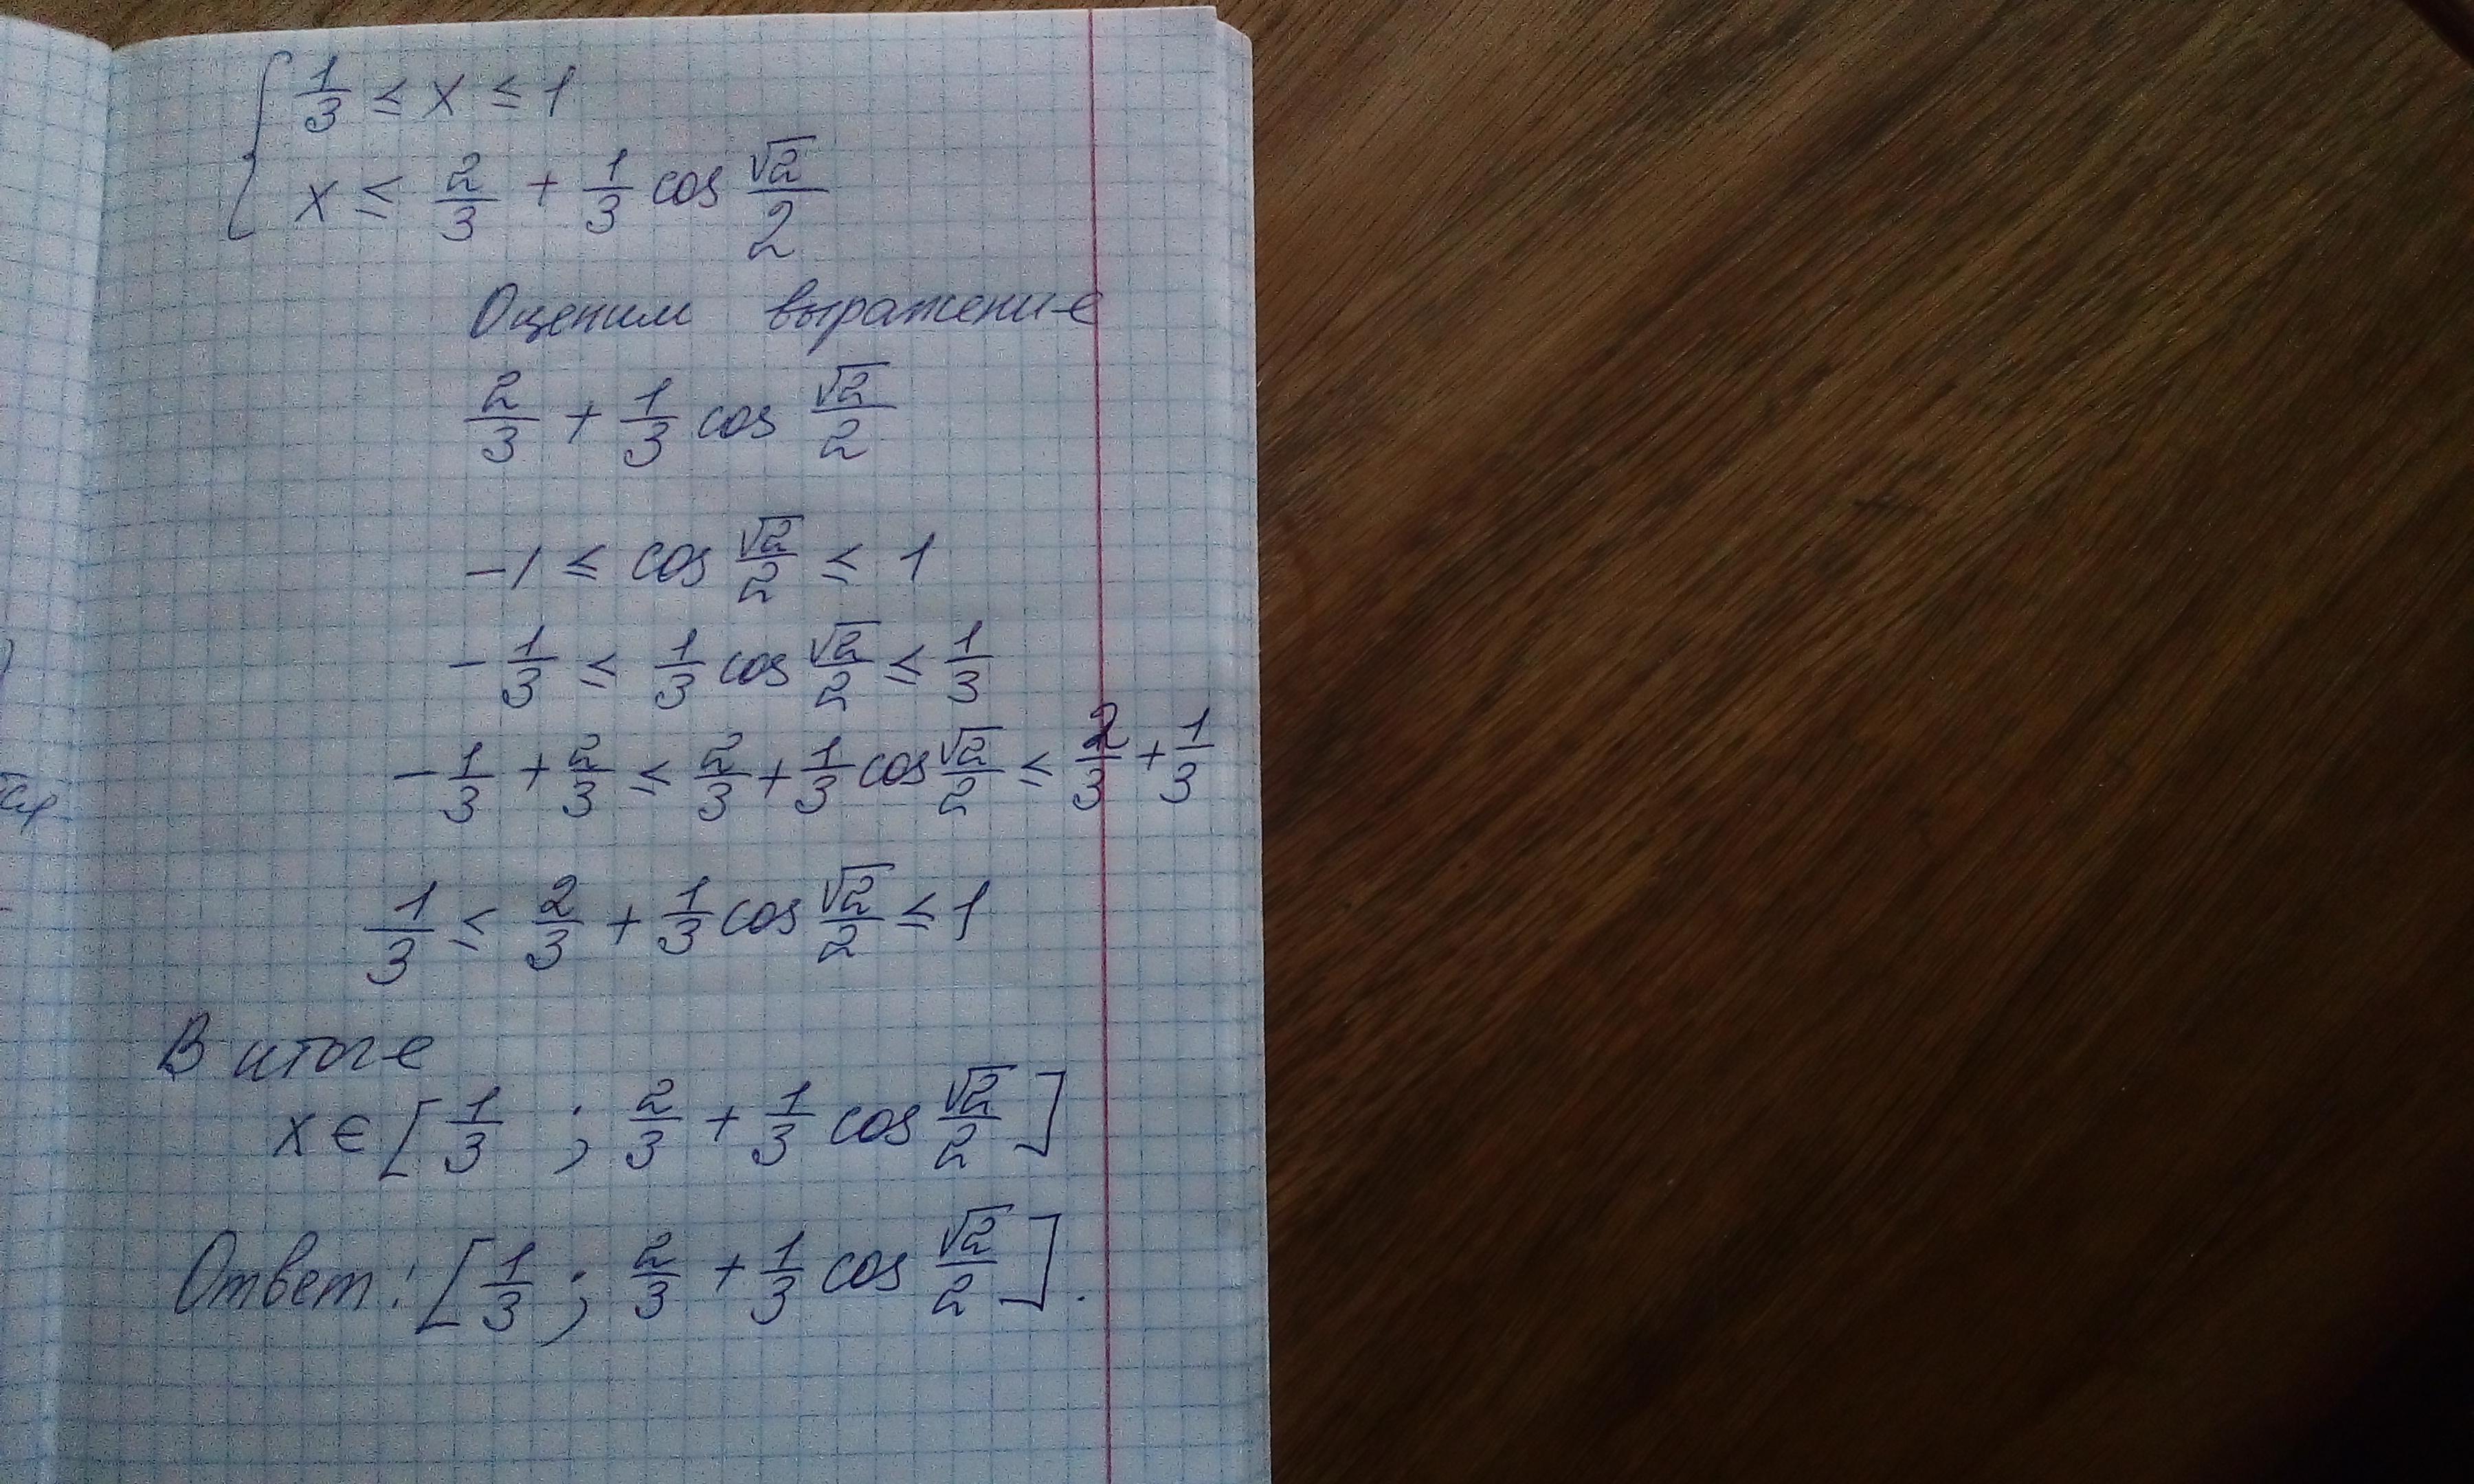 { 1/3 ≤ x ≤ 1
x ≤ 2/3 + 1/3 cos √2/2
Оценим выражение
2/3 + 1/3 cos √2/2
-1 ≤ cos √2/2 ≤ 1
-1/3 ≤ 1/3 cos √2/2 ≤ 1/3
-1/3 + 2/3 ≤ 2/3 + 1/3 cos √2/2 ≤ 2/3 + 1/3
1/3 ≤ 2/3 + 1/3 cos √2/2 ≤ 1
В итоге
x ∈ [1/3 ; 2/3 + 1/3 cos √2/2]
Ответ: [1/3 ; 2/3 + 1/3 cos √2/2].